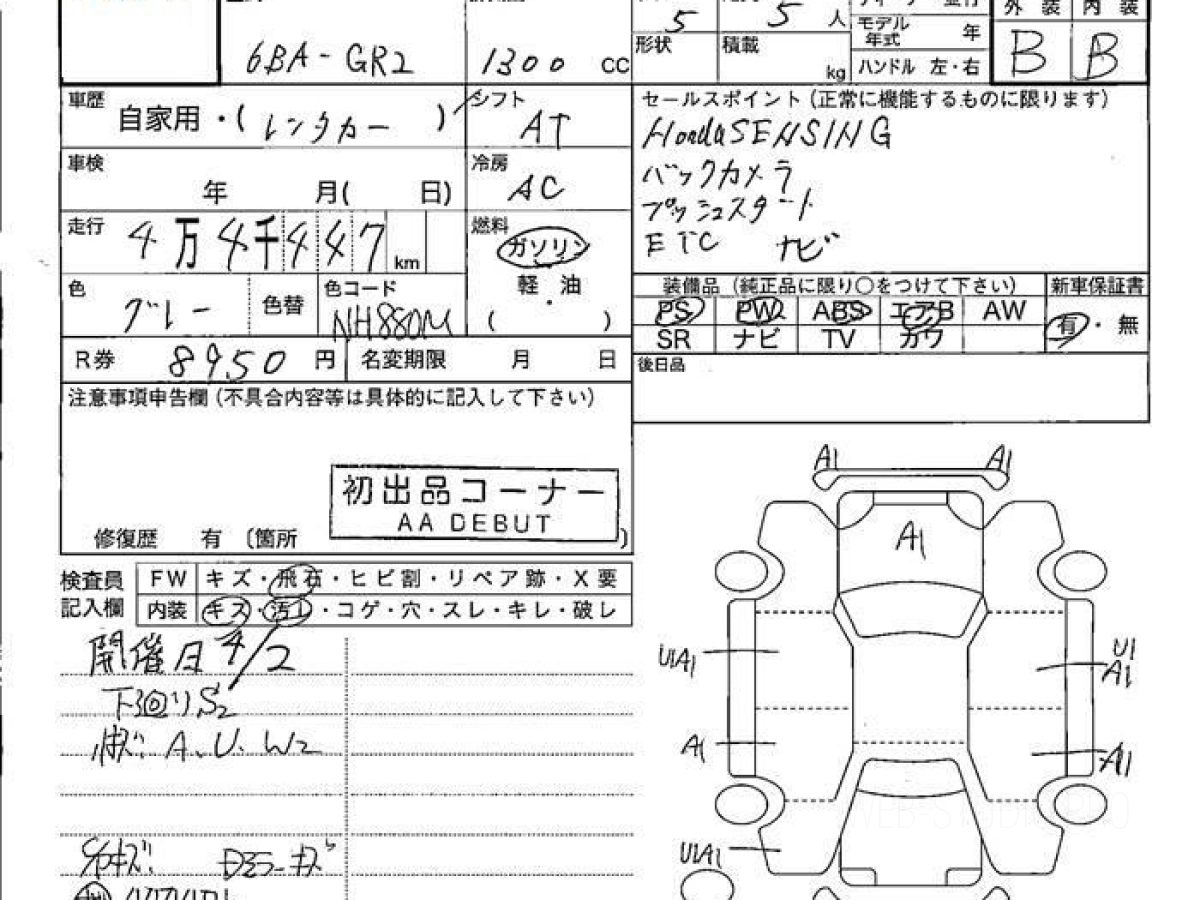 5 5 人
モデル年式 年
外装 内装
6BA-GR2 1300 CC
形状 積載 kg
ハンドル 左・右
B B
車歴 自家用・(レンタカー)
シフト AT
セールスポイント(正常に機能するものに限ります)
Honda SENSING
バックカメラ
プッシュスタート
ETC ナビ
車検 年 月( 日)
冷房 AC
走行 4万4千447km
燃料 ガソリン
軽・油
( )
色 グレー 色替 色コード NH880M
装備品(純正品に限り○をつけて下さい) 新車保証書
PS PW ABS エアB AW 有・無
SR ナビ TV カワ
R券 8950円 名変期限 月 日
後日品
注意事項申告欄(不具合内容等は具体的に記入して下さい)
初出品コーナー
AA DEBUT
修復歴 有〔箇所 )
検査員記入欄
FW キズ・飛石・ヒビ割・リペア跡・X要
内装 キズ・汚し・コゲ・穴・スレ・キレ・破レ
開催日 4/2
下回りS2
A、U、W2
A1 A1
A1
U1A1 U1 A1
A1 A1
U1A1